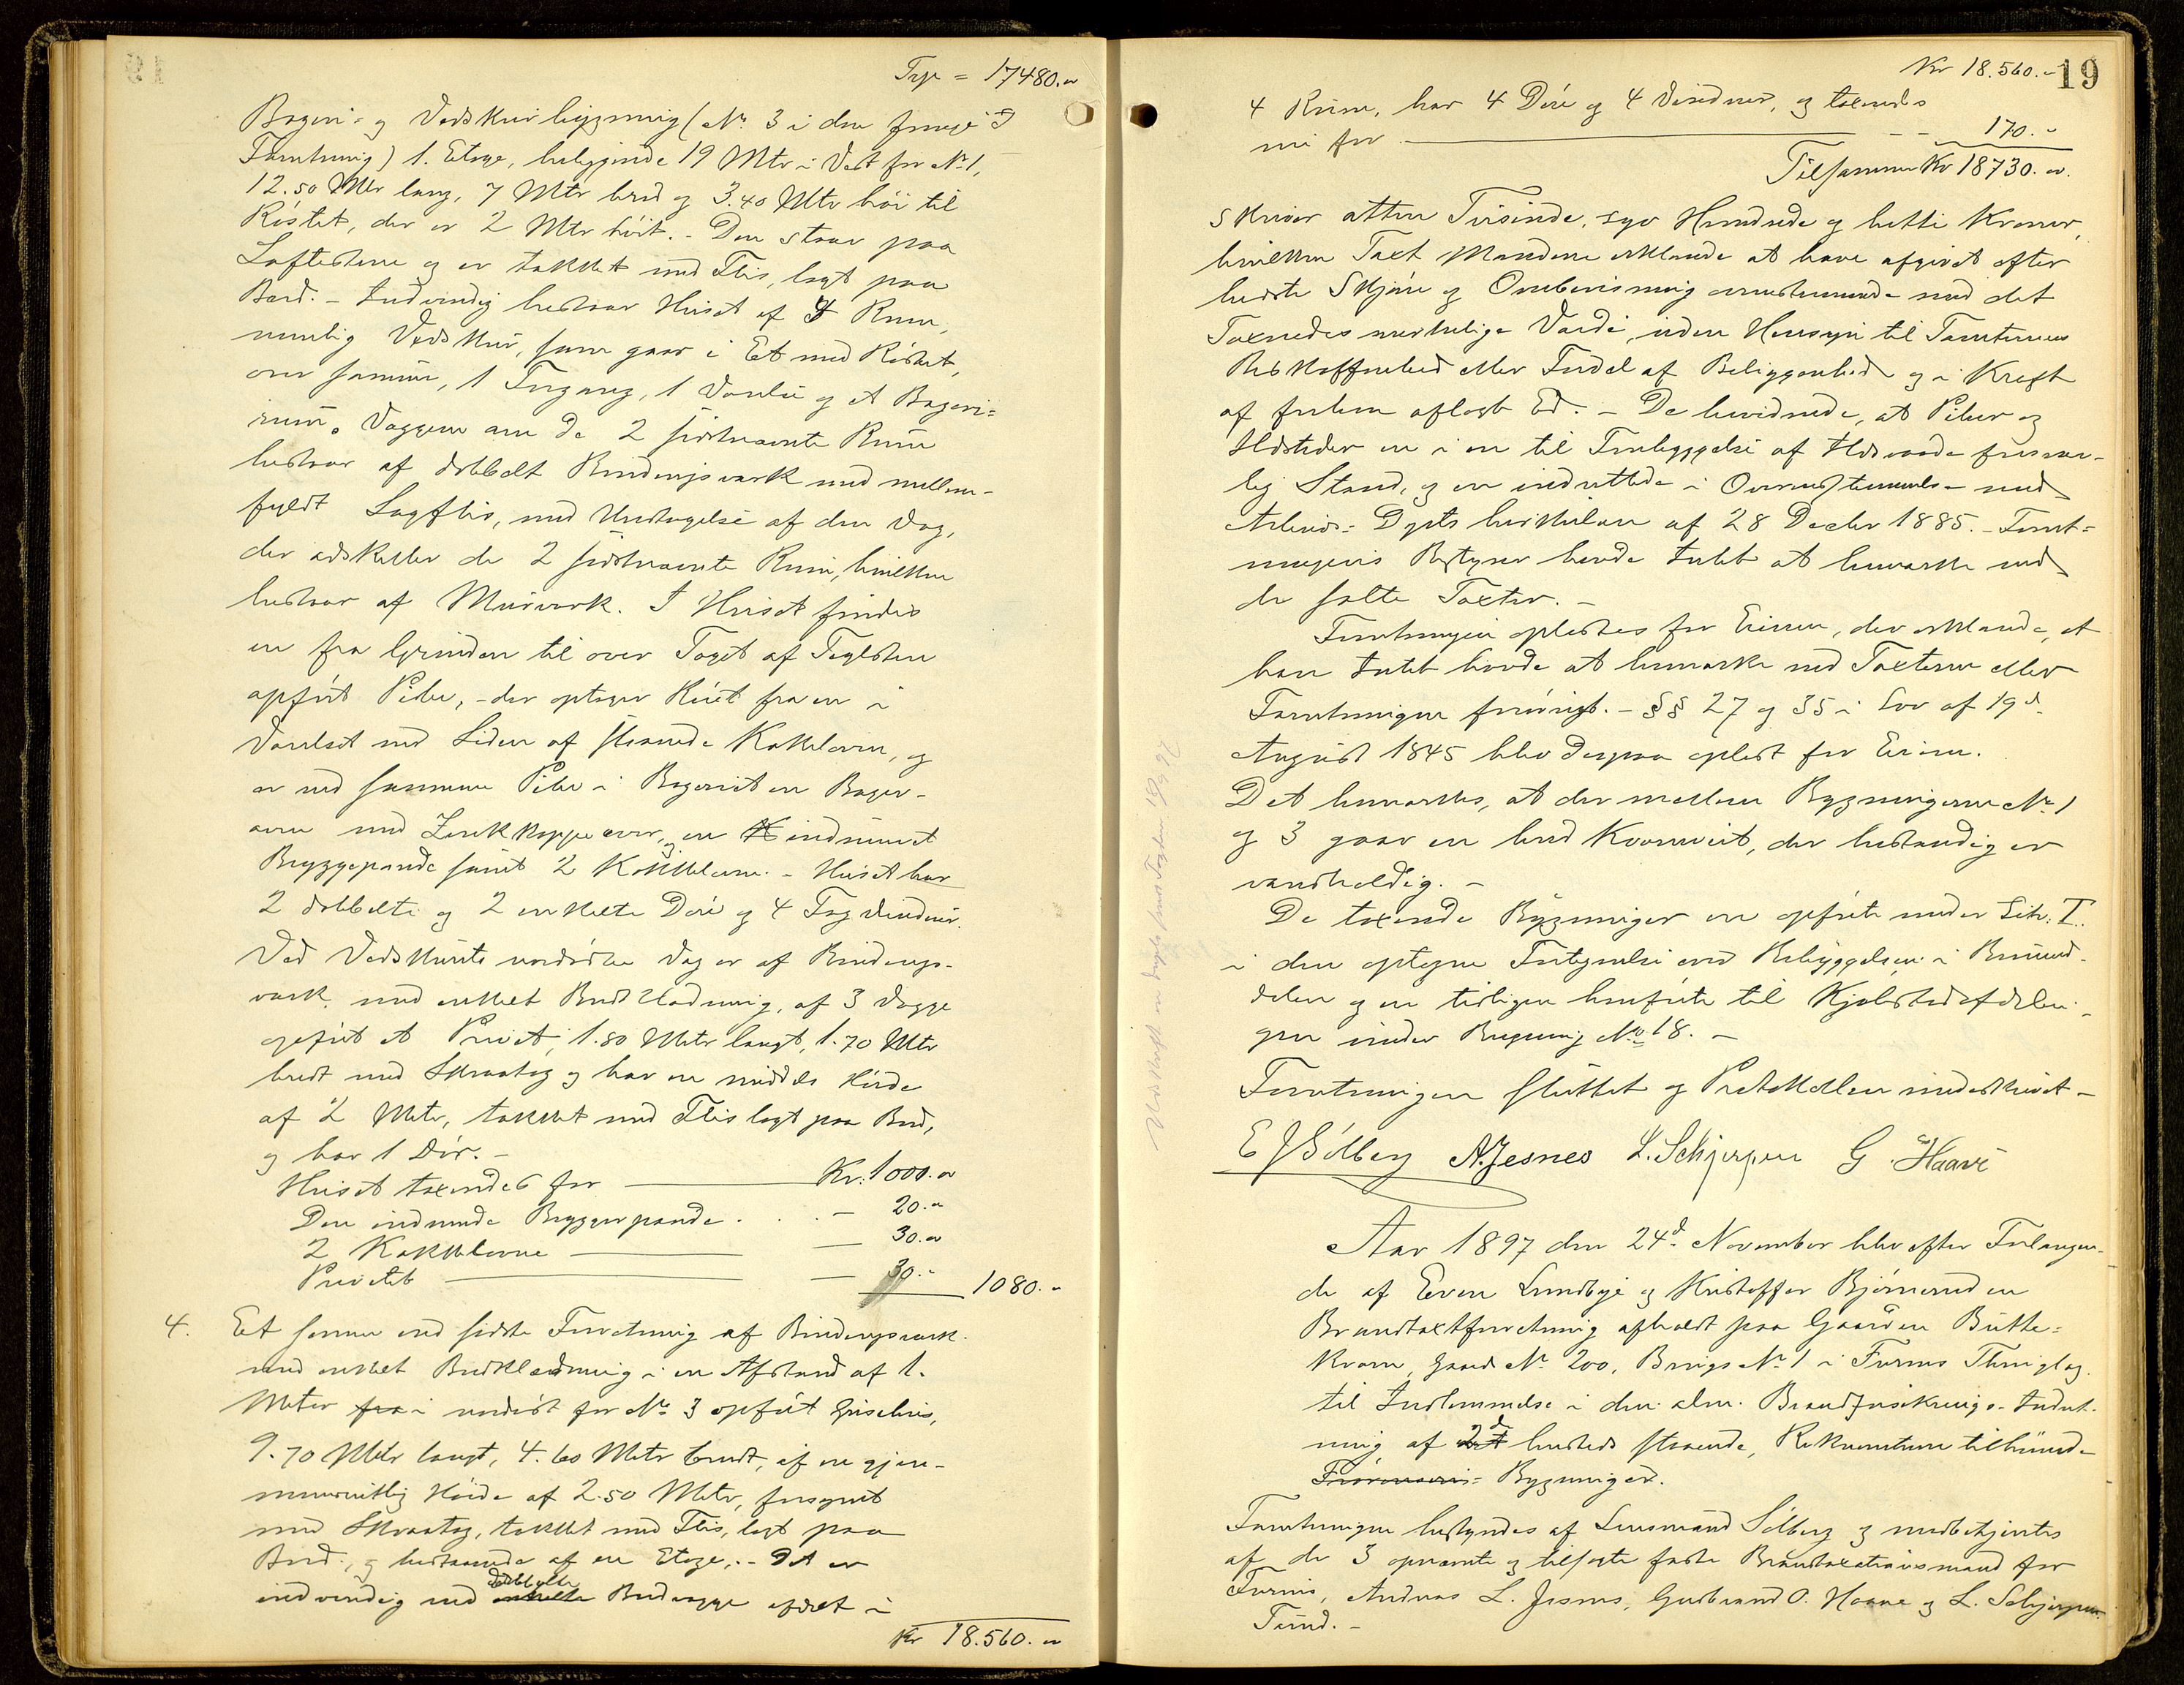 Trp = 17480.
Bageri- og Vedskurbygning (No 3 i den forrige
Forretning) 1. Etage, beliggende 19 Mtr i Vest for No 1,
12.50 Mtr lang, 7 Mtr bred og 3.40 Mtr høi til
Røstet, der er 2 Mtr høit. - Den staar paa
og er tækket med Flis, lagt paa
Bord. - Indvendig bestaar Huset af 4 Rum,
nemlig Vedskur, som gaar i Et med Røstet,
over samme, 1 Indgang, 1 Værelse og et Bageri-
rum. Væggene om de 2 sidstnævnte Rum
bestaar af dobbelt Bindingsværk med mellem-
fyldt Sagflis, med Undtagelse af den Væg,
der adskiller de 2 sidstnævnte Rum, hvilken
bestaar af Murværk. I Huset findes
en fra Grunden til over Taget af Teglsten
opført Pibe, - der optager Røg fra en i
Værelset ved Siden af staaende Kakkelovn, og
er ved samme Pibe i Bageriet en Bager-
ovn med Zinkkappe over, og en indmuret
Bryggepande samt 2 Kakkelovne. - Huset har
2 dobbelte og 2 enkelte Døre og 4 Fag Vinduer.
Ved Vedskurets nordøstre Væg er af Bindings-
værk med enkelt Bordklædning, af 3 Vægge
opført et Privet, 1.80 Mtr langt, 1.70 Mtr
bredt med Skraatag og har en middels Høide
af 2 Mtr, tækket med Flis lagt paa Bord,
og har 1 Dør. -
Huset taxeredes for Kr. 1000.
Den indmurede Bryggerpande . . - 20.
2 Kakkelovne - 30.
Privetet - 30. 1080.
4. Et senere end sidste Forretning af Bindingsværk
med enkelt Bordklædning i en Afstand af 1.
Meter fra i nordøst for No 3 opført Grisehus,
9.70 Mtr langt, 4.60 Meter bredt, af en gjen-
nemsnitlig Høide af 2.50 Mtr, forsynet
med Skraatag, tækket med Flis, lagt paa
Bord, og bestaaende af en Etage. - Det er
indvendig ved enkelte dobbelte Bordvægge afdelt i
Kr 18.560.
Kr 18.560. 19
4 Rum, har 4 Døre og 4 Vinduer, og taxeredes
nu for 170.
Tilsammen Kr 18730.
skriver atten Tusinde, syv Hundrede og tretti Kroner,
hvilken Taxt Mændene erklærede at have afgivet efter
bedste Skjøn og Overbevisning overensstemmende med det
Taxeredes virkelige Værdi, uden Hensyn til Tomternes
Beskaffenhed eller Fordel af Beliggenhed og i Kraft
af forhen aflagt Ed. - De bevidnede, at Piber og
Ildsteder er i en til Forebyggelse af Ildsvaade forsvar-
lig Stand, og er indrettede i Overensstemmelse med
Arbeids-Dpts Cirkulære af 28 Decbr 1885. - Forret-
ningens Bestyrer havde Intet at bemærke ved
de satte Taxter. -
Forretningen oplæstes for Eieren, der erklærede, at
han Intet havde at bemærke ved Taxterne eller
Forretningen forøvrigt. - §§ 27 og 35 i Lov af 19d
August 1845 blev derpaa oplæst for Eieren.
Det bemærkes, at der mellem Bygningerne No 1
og 3 gaar en bred Kvernveit, der bestandig er
vandholdig. -
De taxerede Bygninger er opførte under Litr. I.
i den optagne Fortegnelse over Bebyggelsen i Brumund-
dalen og er tidligere henførte til Kjølstadafdelin-
gen under Bygning No 18. -
Forretningen sluttet og Protokollen underskrevet -
E J Sølberg A. Jesnes L. Schjerpen G. Haave
Aar 1897 den 24d November blev efter Forlangen-
de af Even Lundbye og Kristoffer Bjørnerud en
Brandtaxtforretning afholdt paa Gaarden Butte-
kvern, Gaards No 200, Brugs No 1 i Furnes Thinglag
til Indlemmelse i den alm. Brandforsikrings-Indret-
ning af 2de et hersteds staaende, Rekvirenterne tilhørende
Bygninger.
Forretningen bestyredes af Lensmand Sølberg og medbetjentes
af de 3 opnævnte og tilsagte faste Brandtaxationsmænd for
Furnes, Andreas L. Jesnes, Gudbrand O. Haave og L. Schjerpen